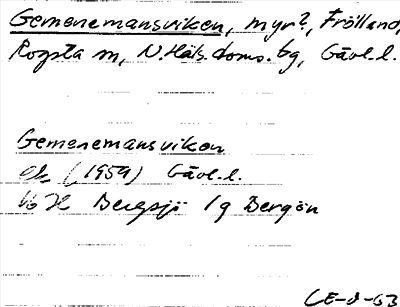 Gemenemansviken, myr?, Frölland,
Rogsta sn, N. Häls. doms. bg, Gävl. l.
Gemenemansviken
ek (1959) Gävl. l.
Bergsjö 19 Bergön
CE-d-63